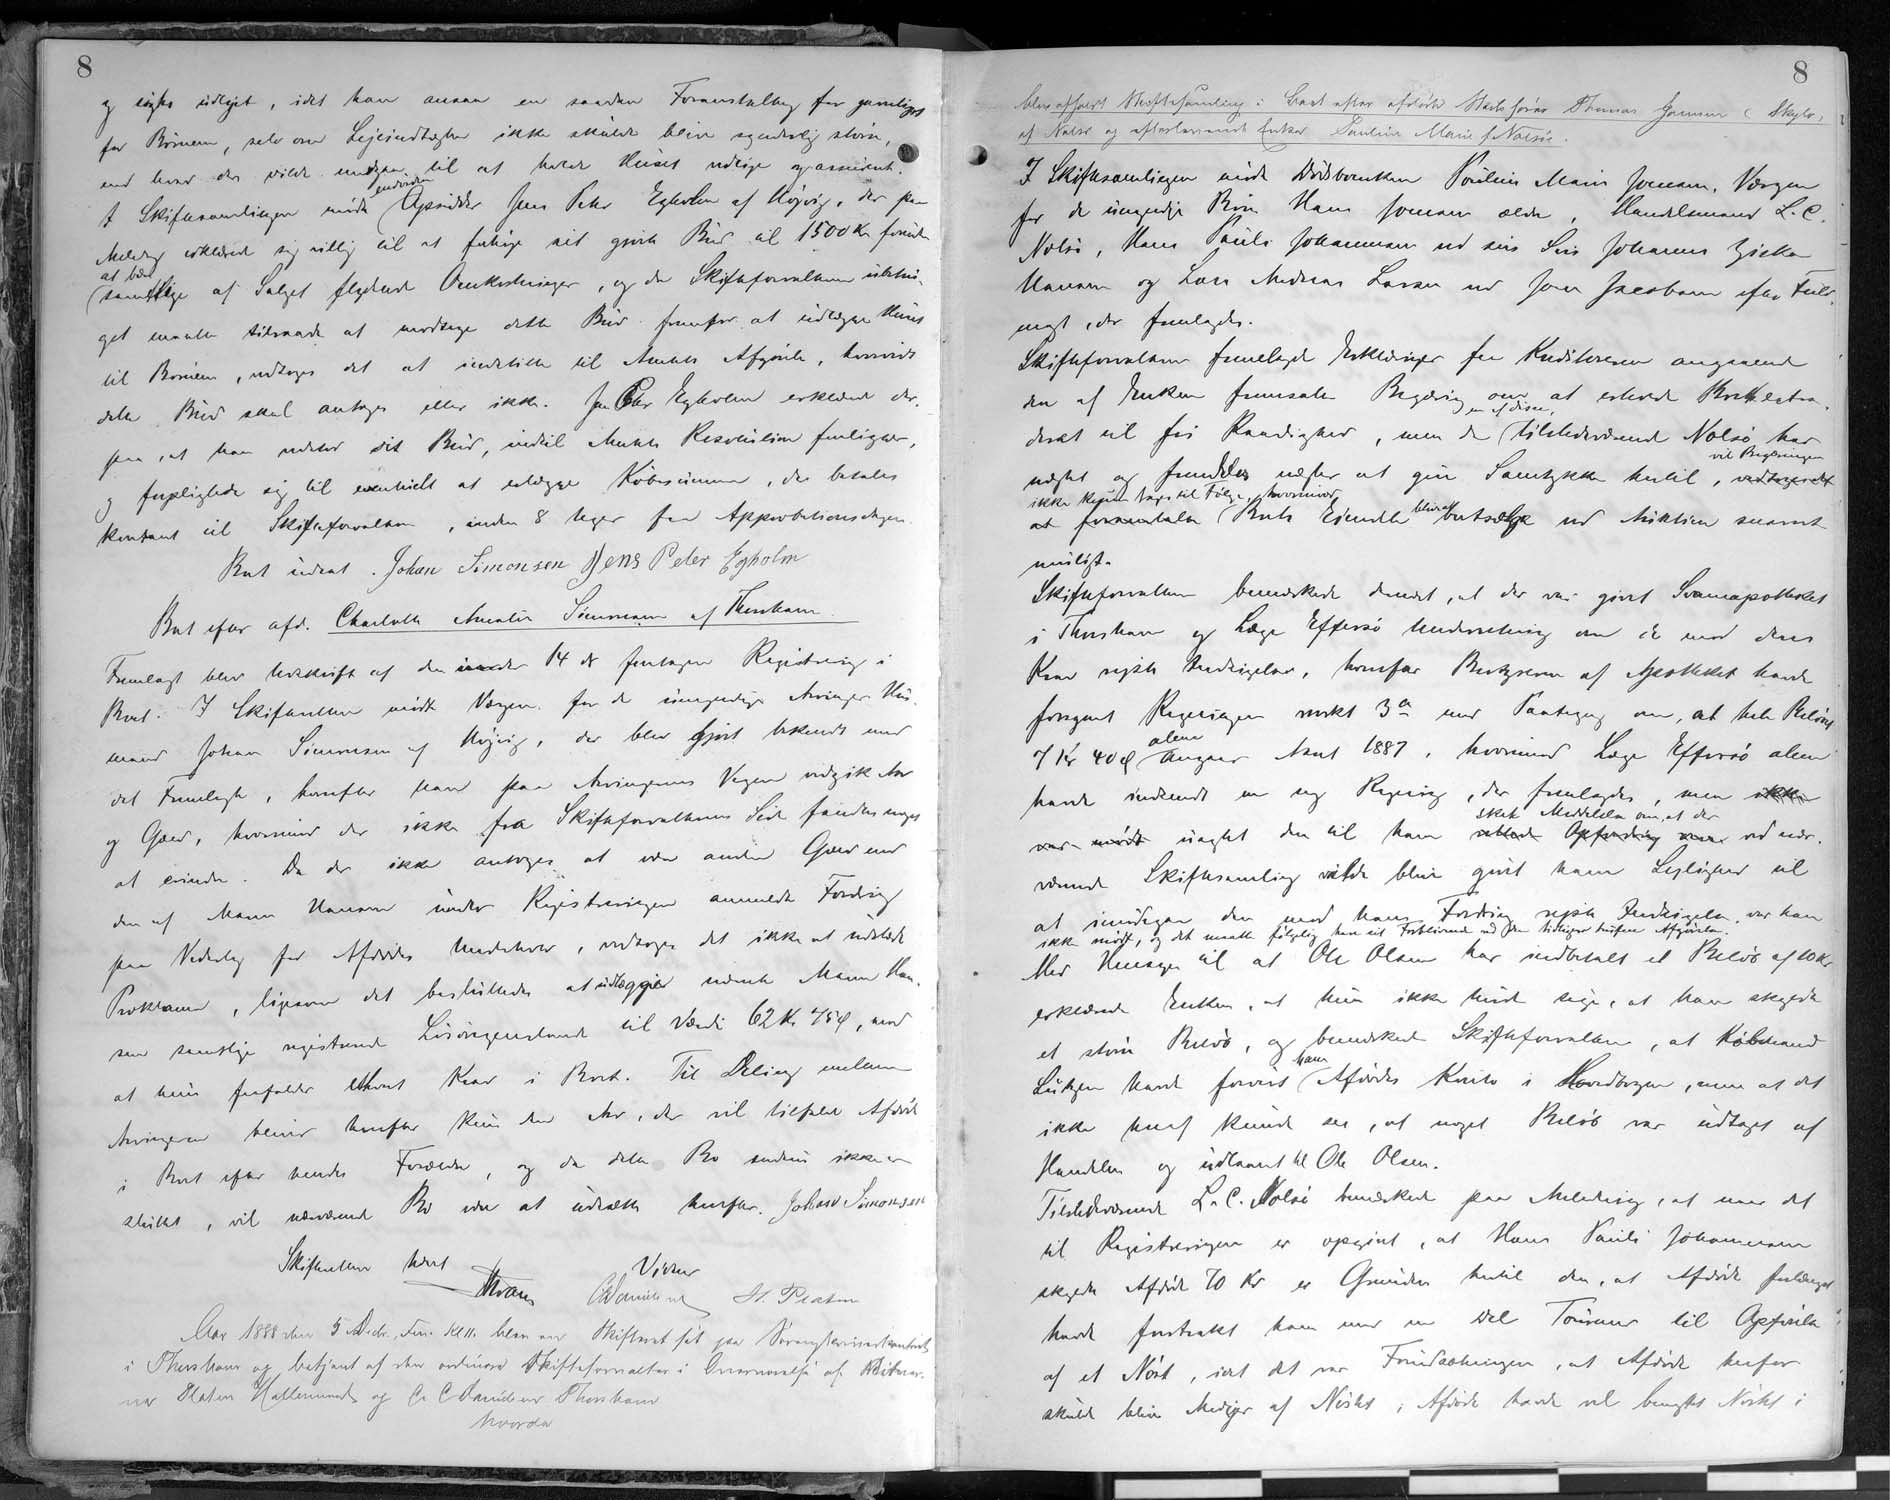 8
og søges udlejet, idet han ansaa en saadan Foranstaltning for gavnligst
for Børnene, selv om Lejeindtægten ikke skulde blive synderlig større,
end hvad der vilde medgaa til at holde Huset vedlige og assureret.
I Skiftesamlingen mødte endvidere Opsidder Jens Peter Egholm af Højvig, der paa
Anledning erklærede sig villig til at forhøje sit gjorte Bud til 1500 Kr foruden
at bære samtlige af Salget flydende Omkostninger, og da Skifteforvalteren ubetin-
get maatte tilraade at modtage dette Bud fremfor at udlægge Huset
til Børnene, vedtoges det at indstille til Amtets Afgørelse, hvorvidt
dette Bud skal antages eller ikke. Jens Peter Egholm erklærede der-
paa, at han vedstod sit Bud, indtil Amtets Resolution foreligger,
og forpligtede sig til eventuelt at erlægge Købesummen, der betales
kontant til Skifteforvalteren, inden 8 Uger fra Approbationsdagen.
Boet udsat. Johan Simonsen Jens Peter Egholm
Boet efter afd. Charlotte Amalie Simonsen af Thorshavn.
Fremlagt blev Udskrift af den 14 ds foretagne Registrering i
Boet. I Skifteretten mødte Værgen for de umyndige Arvinger Hus-
mand Johan Simonsen af Højvig, der blev gjort bekendt med
det Fremlagte, hvorefter han paa Arvingernes Vegne vedgik Arv
og Gæld, hvorimod der ikke fra Skifteforvalterens Side fandtes noget
at erindre. Da der ikke antoges at være anden Gæld end
den af Maren Hansen under Registreringen anmeldte Fordring
paa Vederlag for Afdødes Underhold, vedtoges det ikke at udstede
Proklama, ligesom det besluttedes at udlægge nævnte Maren Han-
sen samtlige registrerede Løsøregenstande til Værdi 62 Kr 75 Ø, mod
at hun frafalder ethvert Krav i Boet. Til Deling mellem
Arvingerne bliver herefter kun den Arv, der vil tilfalde Afdøde
i Boet efter hendes Forældre, og da dette Bo endnu ikke er
sluttet, vil nærværende Bo være at udsætte herefter. Johan Simonsen
Skifteretten hævet
Vidner
H. Platen
Aar 1888 den 5 Decbr. Fm. Kl 11 blev en Skifteret sat paa Sorenskriverkontoret
i Thorshavn og betjent af den ordinære Skifteforvalter i Overværelse af Vidner-
ne Platen Hallermund og C. C. Danielsen Thorshavn
hvorda
8
blev afholdt Skiftesamling i Boet efter afdøde Thomas Joensen (Skylv)
af Nolsø og efterlevende Enke Pauline Marie f. Nolsøe.
I Skiftesamlingen mødte Dødsboenken Pauline Marie Joensen, Værgen
for de umyndige Børn Hans Joensen ældre, Handelsmand L. C.
Nolsø, Hans Pauli Johannesen ved sin Søn Johannes
Hansen og Lars Andreas Larsen ved Joen Jacobsen efter Fuld-
magt, der fremlagdes.
Skifteforvalteren fremlagde Erklæringer fra Kreditorerne angaaende
den af Enken fremsatte Begæring om at erholde Boet extra-
deret til fri Raadighed, men da en af disse, tilstedeværende Nolsø har
nægtet og fremdeles nægter at give Samtykke hertil, vil Begæringen
ikke kunne tages til Følge, hvorimod
Boets Ejendele bliver at bortsælge ved Auktion snarest
muligt.
Skifteforvalteren bemærkede dernæst, at der var givet Svaneapotheket
i Thorshavn og Læge Effersø Underretning om de mod deres
Krav rejste Indsigelser, hvorefter Bestyreren af Apotheket havde
forsynet Regningen mærket 3 a med Paategning om, at hele Beløbet
7 Kr 40 Ø alene angaar Aaret 1887, hvorimod Læge Effersø alene
havde indsendt en ny Regning, der fremlagdes, men
uagtet den til ham skete Meddelelse om, at der ved nær-
værende Skiftesamling vilde blive givet ham Lejlighed til
at imødegaa den mod hans Fordring rejste Indsigelse, var han
ikke mødt, og det maatte følgelig have sit Forblivende ved den tidligere trufne Afgørelse.
Med Hensyn til at Ole Olsen har indbetalt et Beløb af 10 Kr
erklærede Enken, at hun ikke turde sige, at han skyldte
et større Beløb, og bemærkede Skifteforvalteren, at Købmand
Lützen havde forevist ham Afdødes Konto i Hovedbogen, men at det
ikke heraf kunde ses, at noget Beløb var udtaget af
Handelen og udlaant til Ole Olsen.
Tilstedeværende L. C. Nolsø bemærkede paa Anledning, at naar det
til Registreringen er opgivet, at Hans Pauli Johannesen
skyldte Afdøde 70 Kr er Grunden hertil den, at Afdøde forlængst
havde forstrakt ham med en Del Tømmer til Opførelse
af et Nøst, idet det var Forudsætningen, at Afdøde herfor
skulde blive Medejer af Nøstet; Afdøde havde vel benyttet Nøstet i